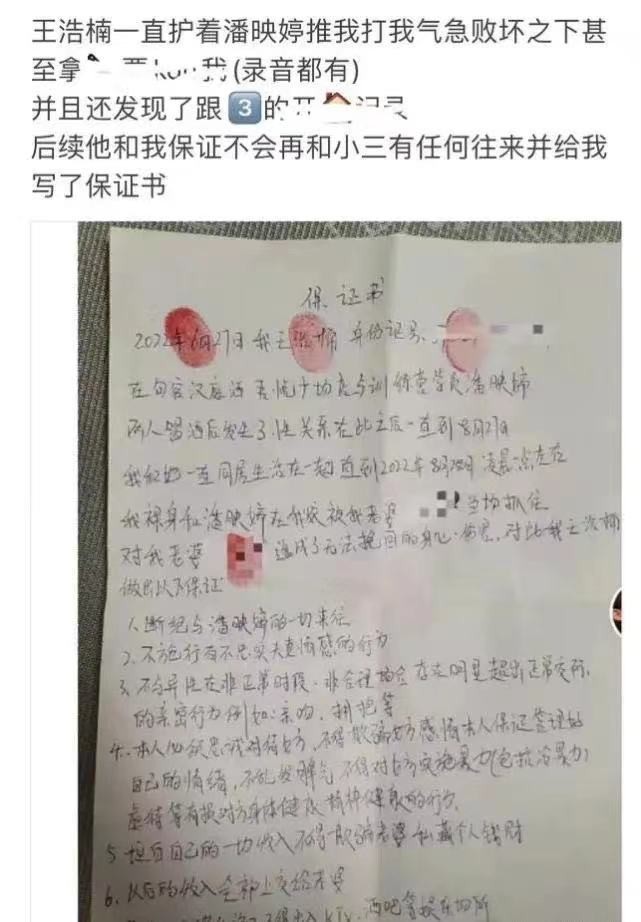 王浩楠一直护着潘映婷推我打我气急败坏之下甚
至拿 我(录音都有)
并且还发现了跟3️⃣的开🏠记录
后续他和我保证不会再和小三有任何往来并给我
写了保证书
保证书
2022年6月27日我王浩楠 身份证号:
在句容汉庭酒 吾悦广场店与训练营学员潘映婷
两人留酒后发生了性关系在此之后一直到8月27日
我和她一直同居生活在一起直到2022年8月28日凌晨一点左右
我裸身和潘映婷在我家被我老婆 当场抓住
对我老婆 造成了无法挽回的身心伤害,对此我王浩楠
做出以下保证
1.断绝与潘映婷的一切来往
2.不施行有不忠实夫妻情感的行为
3.不与异性在非正常时段、非合理场合存在明显超出正常交际
的亲密行为例如:亲吻、拥抱等
4.本人 对待女方,不得欺骗女方感情本人保证管理好
自己的情绪,不乱发脾气不得对女方实施暴力(包括冷暴力)
虐待等有损对方身体健康精神健康的行为
5.坦白自己的一切收入不得欺骗老婆私藏个人钱财
6.以后的收入全部上交给老婆
不得出入KTV、酒吧等娱乐场所